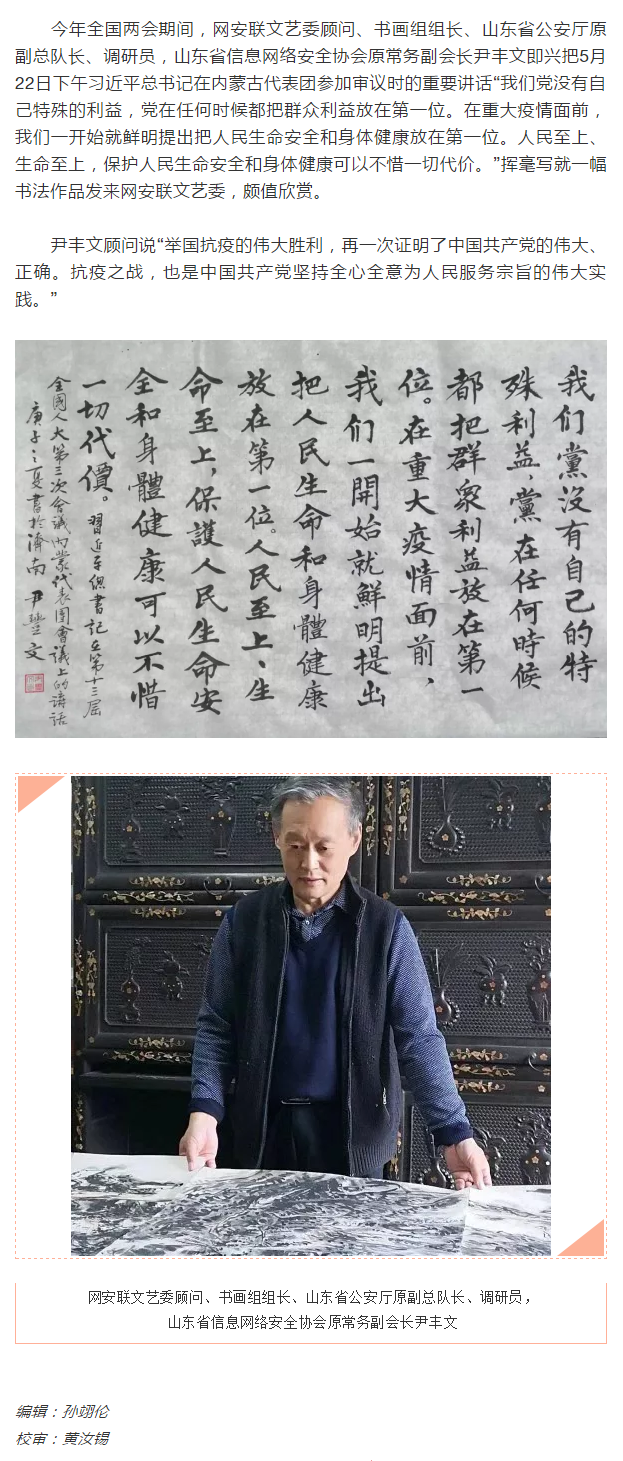 今年全国两会期间，网安联文艺委顾问、书画组组长、山东省公安厅原
副总队长、调研员，山东省信息网络安全协会原常务副会长尹丰文即兴把5月
22日下午习近平总书记在内蒙古代表团参加审议时的重要讲话“我们党没有自
己特殊的利益，党在任何时候都把群众利益放在第一位。在重大疫情面前，
我们一开始就鲜明提出把人民生命安全和身体健康放在第一位。人民至上、
生命至上，保护人民生命安全和身体健康可以不惜一切代价。”挥毫写就一幅
书法作品发来网安联文艺委，颇值欣赏。
尹丰文顾问说“举国抗疫的伟大胜利，再一次证明了中国共产党的伟大、
正确。抗疫之战，也是中国共产党坚持全心全意为人民服务宗旨的伟大实
践。”
我们黨没有自己的特
殊利益，黨在任何時候
都把群衆利益放在第一
位。在重大疫情面前，
我们一開始就鮮明提出
把人民生命和身體健康
放在第一位。人民至上、生
命至上，保護人民生命安
全和身體健康可以不惜
一切代價。習近平總書記在第十三屆
全國人大第三次會議內蒙代表團會議上的講话
庚子之夏書於濟南尹豐文
网安联文艺委顾问、书画组组长、山东省公安厅原副总队长、调研员，
山东省信息网络安全协会原常务副会长尹丰文
编辑：孙翊伦
校审：黄汝锡